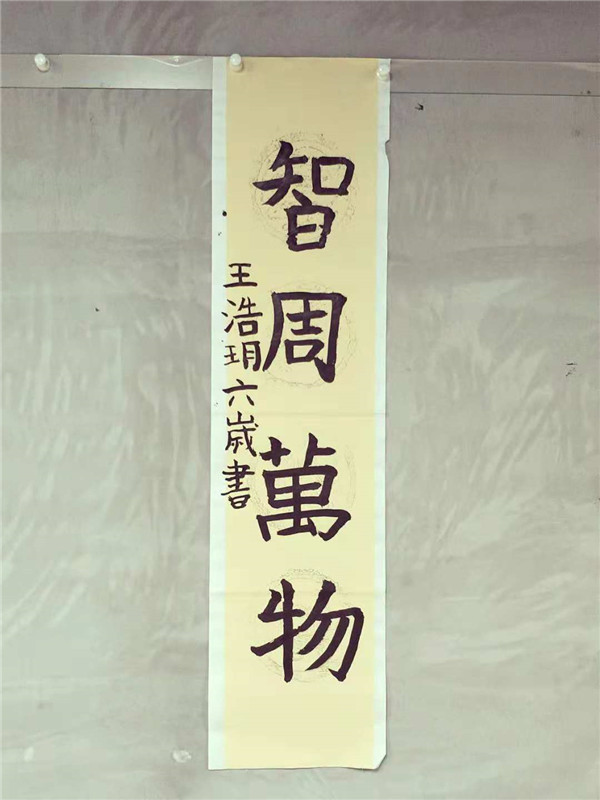 智周萬物
王浩玥六歲書